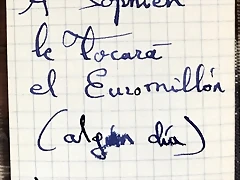 A Sophien
le Tocará
el Euromillón
(algún día)